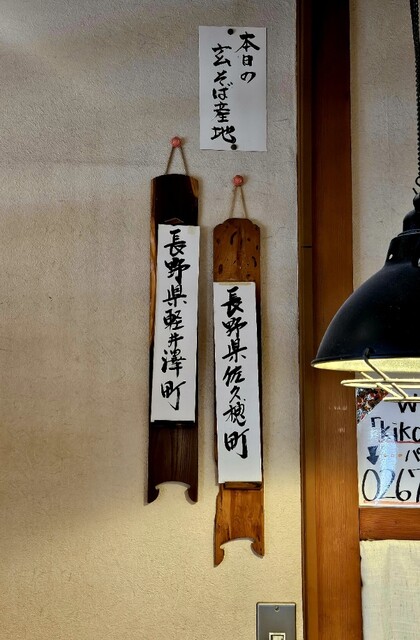 本日の
玄そば産地
長野県佐久穂町
長野県軽井澤町
0267